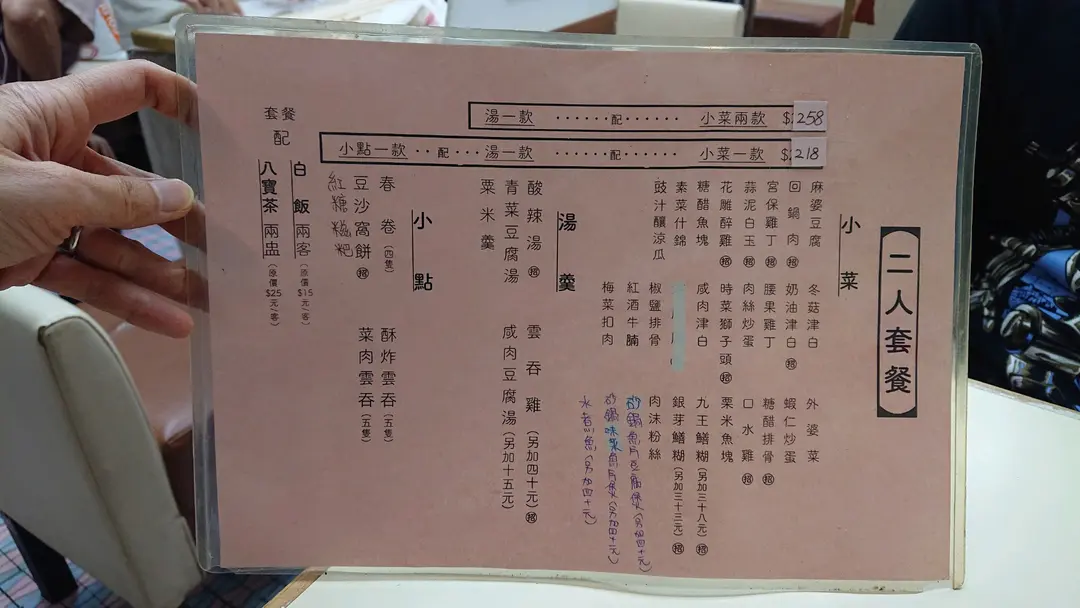 二人套餐
湯一款 ······· 配 ······· 小菜兩款 $258
小點一款 ·· 配 ···· 湯一款 ······· 配 ······· 小菜一款 $218
小菜
麻婆豆腐 冬菇津白 外婆菜
回鍋肉 招 奶油津白 招 蝦仁炒蛋
宮保雞丁 招 腰果雞丁 糖醋排骨 招
蒜泥白玉 招 肉絲炒蛋 口水雞 招
花雕醉雞 招 時菜獅子頭 招 粟米魚塊
糖醋魚塊 咸肉津白 九王鱔糊(另加三十八元) 招
素菜什錦 銀芽鱔糊(另加三十三元) 招
豉汁釀涼瓜 椒鹽排骨 肉沫粉絲
紅酒牛腩 砂鍋魚片豆腐煲(另加四十元)
梅菜扣肉 砂鍋味菜魚片煲(另加四十元)
水煮魚(另加四十元)
湯羹
酸辣湯 招 雲吞雞(另加四十元) 招
青菜豆腐湯 咸肉豆腐湯(另加十五元)
粟米羹
小點
春卷(四隻) 酥炸雲吞(五隻)
豆沙窩餅 招 菜肉雲吞(五隻)
紅糖糍粑
套餐
配
白飯兩客(原價$15元/客)
八寶茶兩盅(原價$25元/客)